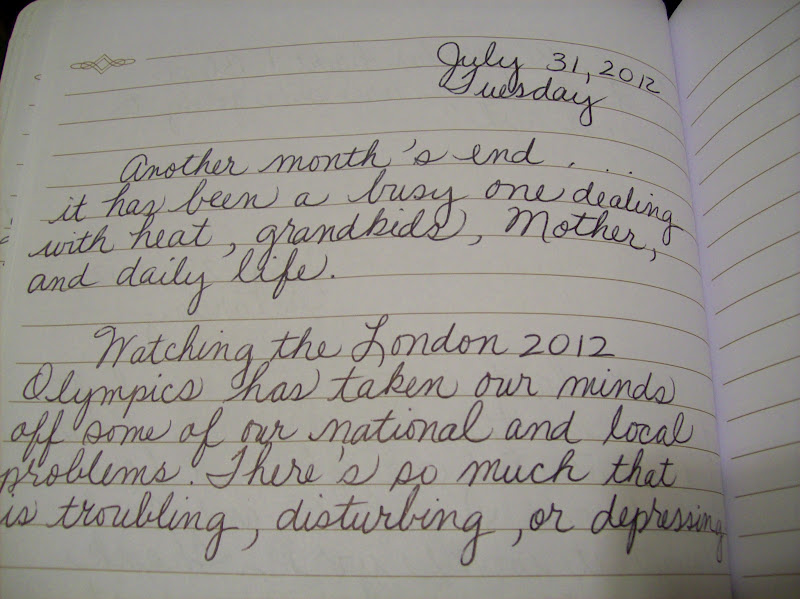 July 31, 2012
Tuesday
Another month's end . . .
it has been a busy one dealing
with heat, grandkids, Mother,
and daily life.
Watching the London 2012
Olympics has taken our minds
off some of our national and local
problems. There's so much that
is troubling, disturbing, or depressing